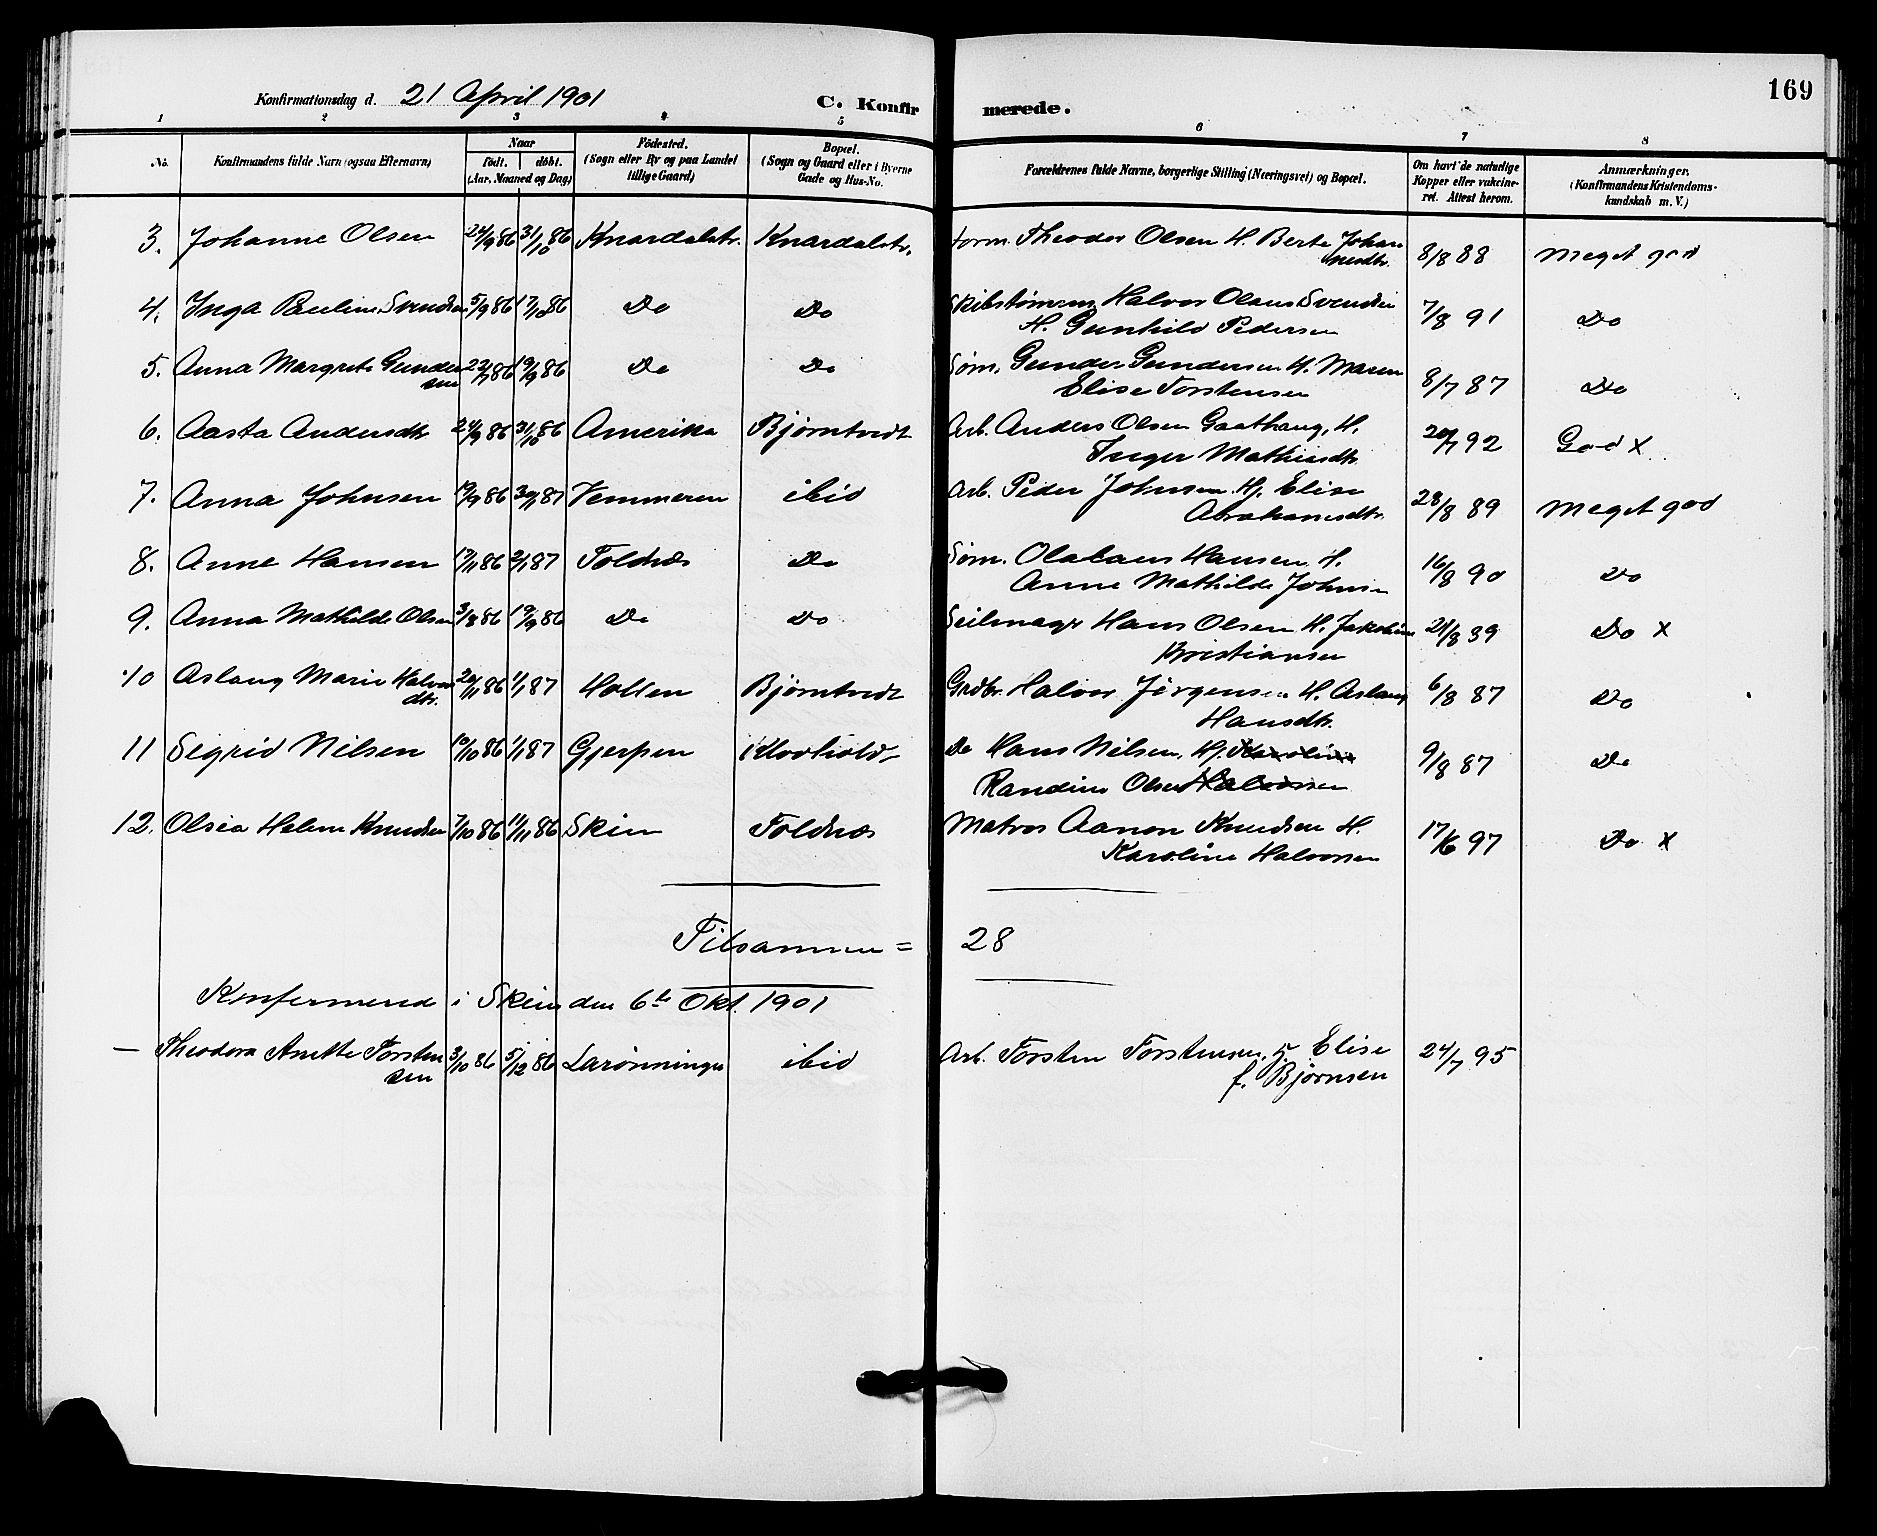 169
Konfirmationsdag d. 21 April 1901 C. Konfir merede.
1 2 3 4 5 6 7 8
No. Konfirmandens fulde Navn (ogsaa Efternavn) Naar födt. döbt. (Aar, Maaned og Dag) Födested. (Sogn eller By og paa Landet tillige Gaard) Bopæl. (Sogn og Gaard eller i Byerne Gade og Hus-No. Forældrenes fulde Navne, borgerlige Stilling (Næringsvei) og Bopæl. Om havt de naturlige Kopper eller vakcineret. Attest herom. Anmærkninger. (Konfirmandens Kristendomskundskab m. V.)
3. Johanne Olsen 24/9 86 31/10 86 Knardalstr. Knardalstr. Form. Theodor Olsen H. Berte Johan 8/8 88 Meget god
nesdtr.
4. Inga Pauline Svendsen 5/9 86 17/10 86 Do Do Skibstømm. Halvor Olaus Svendsen 7/8 91 Do
H. Gunhild Pedersen
5. Anna Margrete Gunder 22/7 86 19/9 86 Do Do Søm. Gunder Gundersen H. Maren 8/7 87 Do
sen Elise Torstensen
6. Aasta Andersdtr. 24/9 86 31/10 86 Amerika Bjørntvedt Arb. Anders Olsen Gaathaug, H. 20/7 92 God x
Inger Mathisdtr.
7. Anna Johnsen 19/9 86 87 Vemmeren ibid Arb. Peder Johnsen Hj. Elise 28/8 89 Meget god
Abrahamsdtr.
8. Anne Hansen 17/11 86 2/1 87 Foldnæs Do Søm. Olalaus Hansen H. 16/8 90 Do
Anne Mathilde Johnsen
9. Anna Mathilde Olsen 3/8 86 19/9 86 Do Do Seilmager Hans Olsen H. Jakobine Do x
Kristiansen
10 Aslaug Marie Halvor 20/11 86 1/1 87 Hollen Bjørntvedt Grdbr. Halvor Jørgensen H. Aslaug 6/8 87 Do
dtr. Hansdtr.
11 Sigrid Nilsen 10/10 86 1/1 87 Gjerpen Klovholdt Do Hans Nilsen, Hj. Karoline 9/8 87 Do
Randine Olsen Halvorsen
12. Olsea Helene Knudsen 7/10 86 11/11 86 Skien Foldnæs Matros Aanon Knudsen H. 17/6 97 Do x
Karoline Halvorsen
Tilsammen = 28
Konfermered i Skien den 6te Okt. 1901
— Theodora Anette Torsten 3/10 86 5/12 86 Larønningen ibid Arb. Torsten Torstensen, Elise 24/7 95
sen f. Bjørnsen